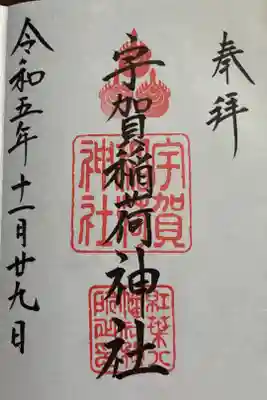 奉拝
宇賀稲荷神社
宇賀
神社
令和五年十一月廿九日